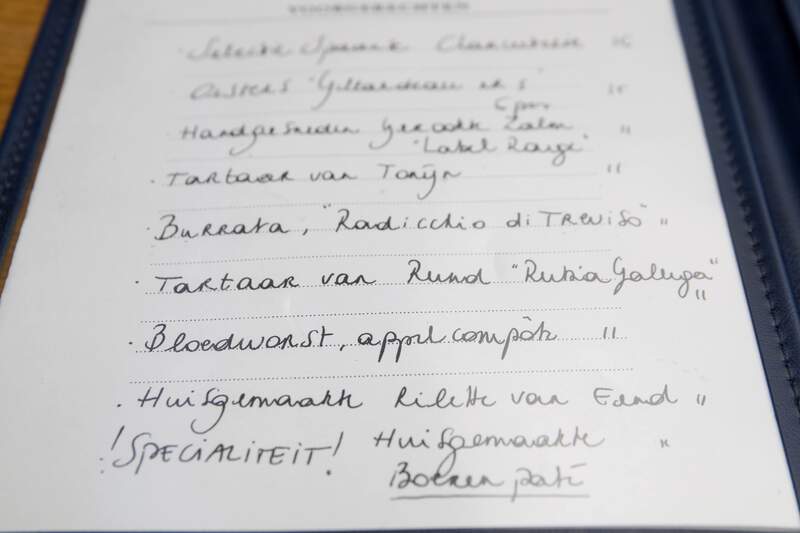 VOORGERECHTEN
· Selectie Spaanse Charcuterie
Oesters "Gillardeau nr 5"
6 per
Handgesneden Gerookte Zalm "
"Label Rouge"
· Tartaar van Tonijn "
· Burrata, "Radicchio di TREVISO" "
· Tartaar van Rund "Rubia Gallega"
"
· Bloedworst, appelcompôte "
· Huisgemaakte Rilette van Eend "
!SPECIALITEIT! Huisgemaakte "
Boeren paté